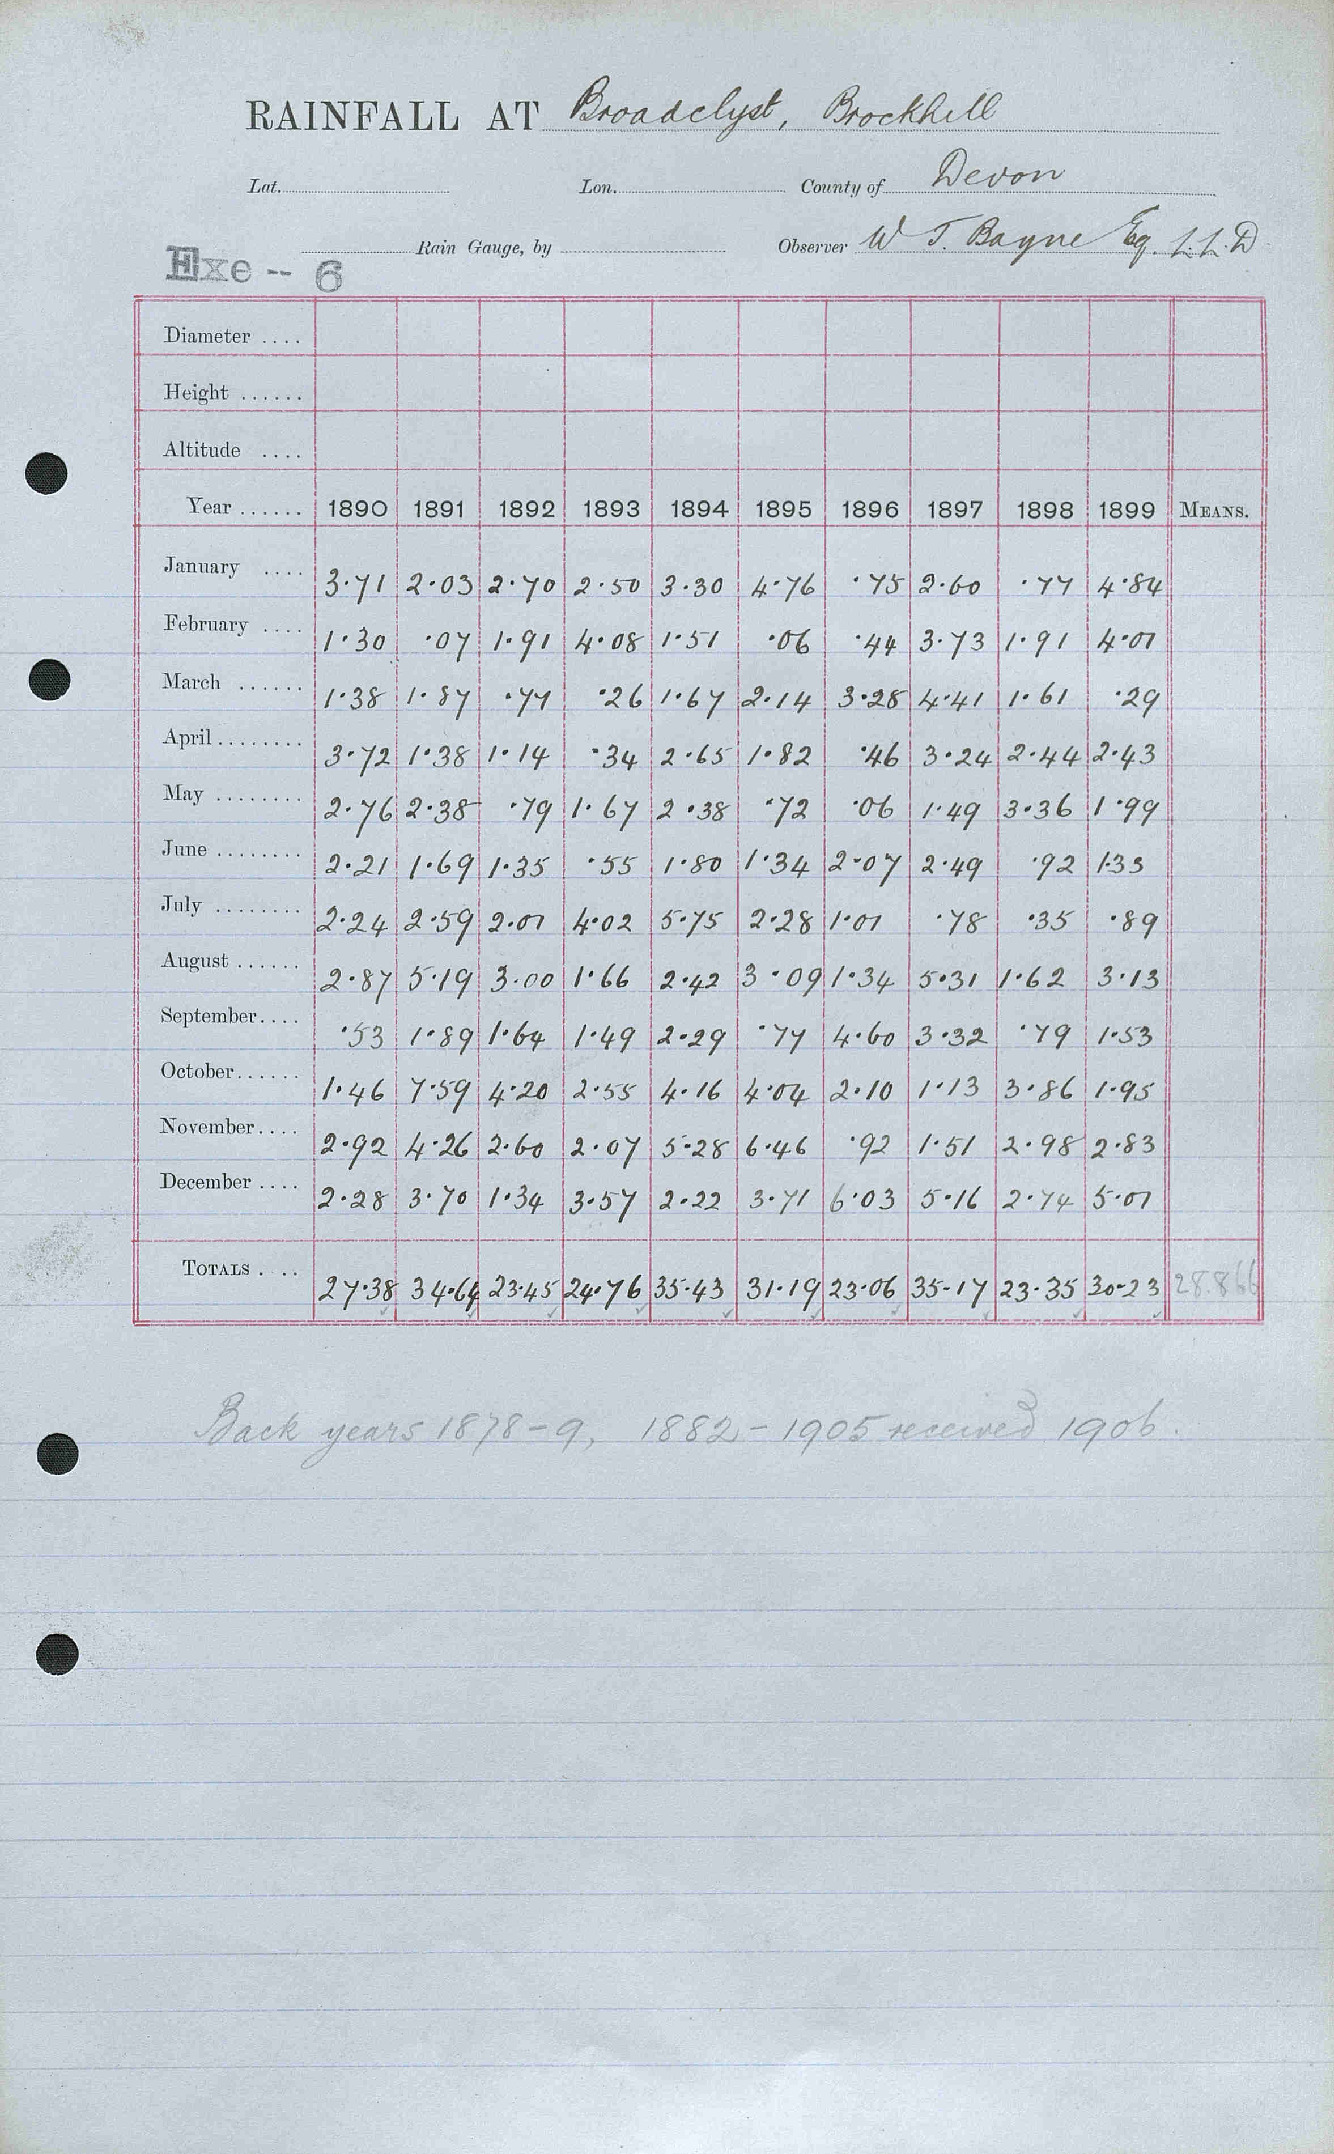 RAINFALL AT Broadclyst, Brockhill
Lat. Lon. County of Devon
Rain Gauge, by Observer W T. Bayne Esq. L.L.D
Exe -- 6
Diameter ....
Height ......
Altitude ....
Year ...... 1890 1891 1892 1893 1894 1895 1896 1897 1898 1899 MEANS.
January .... 3·71 2·03 2·70 2·50 3·30 4·76 ·75 2·60 ·77 4·84
February .... 1·30 ·07 1·91 4·08 1·51 ·06 ·44 3·73 1·91 4·01
March ...... 1·38 1·87 ·77 ·26 1·67 2·14 3·28 4·41 1·61 ·29
April ........ 3·72 1·38 1·14 ·34 2·65 1·82 ·46 3·24 2·44 2·43
May ........ 2·76 2·38 ·79 1·67 2·38 ·72 ·06 1·49 3·36 1·99
June ........ 2·21 1·69 1·35 ·55 1·80 1·34 2·07 2·49 ·92 1·33
July ........ 2·24 2·59 2·01 4·02 5·75 2·28 1·01 ·78 ·35 ·89
August ...... 2·87 5·19 3·00 1·66 2·42 3·09 1·34 5·31 1·62 3·13
September.... ·53 1·89 1·64 1·49 2·29 ·77 4·60 3·32 ·79 1·53
October...... 1·46 7·59 4·20 2·55 4·16 4·04 2·10 1·13 3·86 1·95
November.... 2·92 4·26 2·60 2·07 5·28 6·46 ·92 1·51 2·98 2·83
December .... 2·28 3·70 1·34 3·57 2·22 3·71 6·03 5·16 2·74 5·01
TOTALS .... 27·38 34·64 23·45 24·76 35·43 31·19 23·06 35·17 23·35 30·23 28.866
Back years 1878-9, 1882-1905 received 1906.